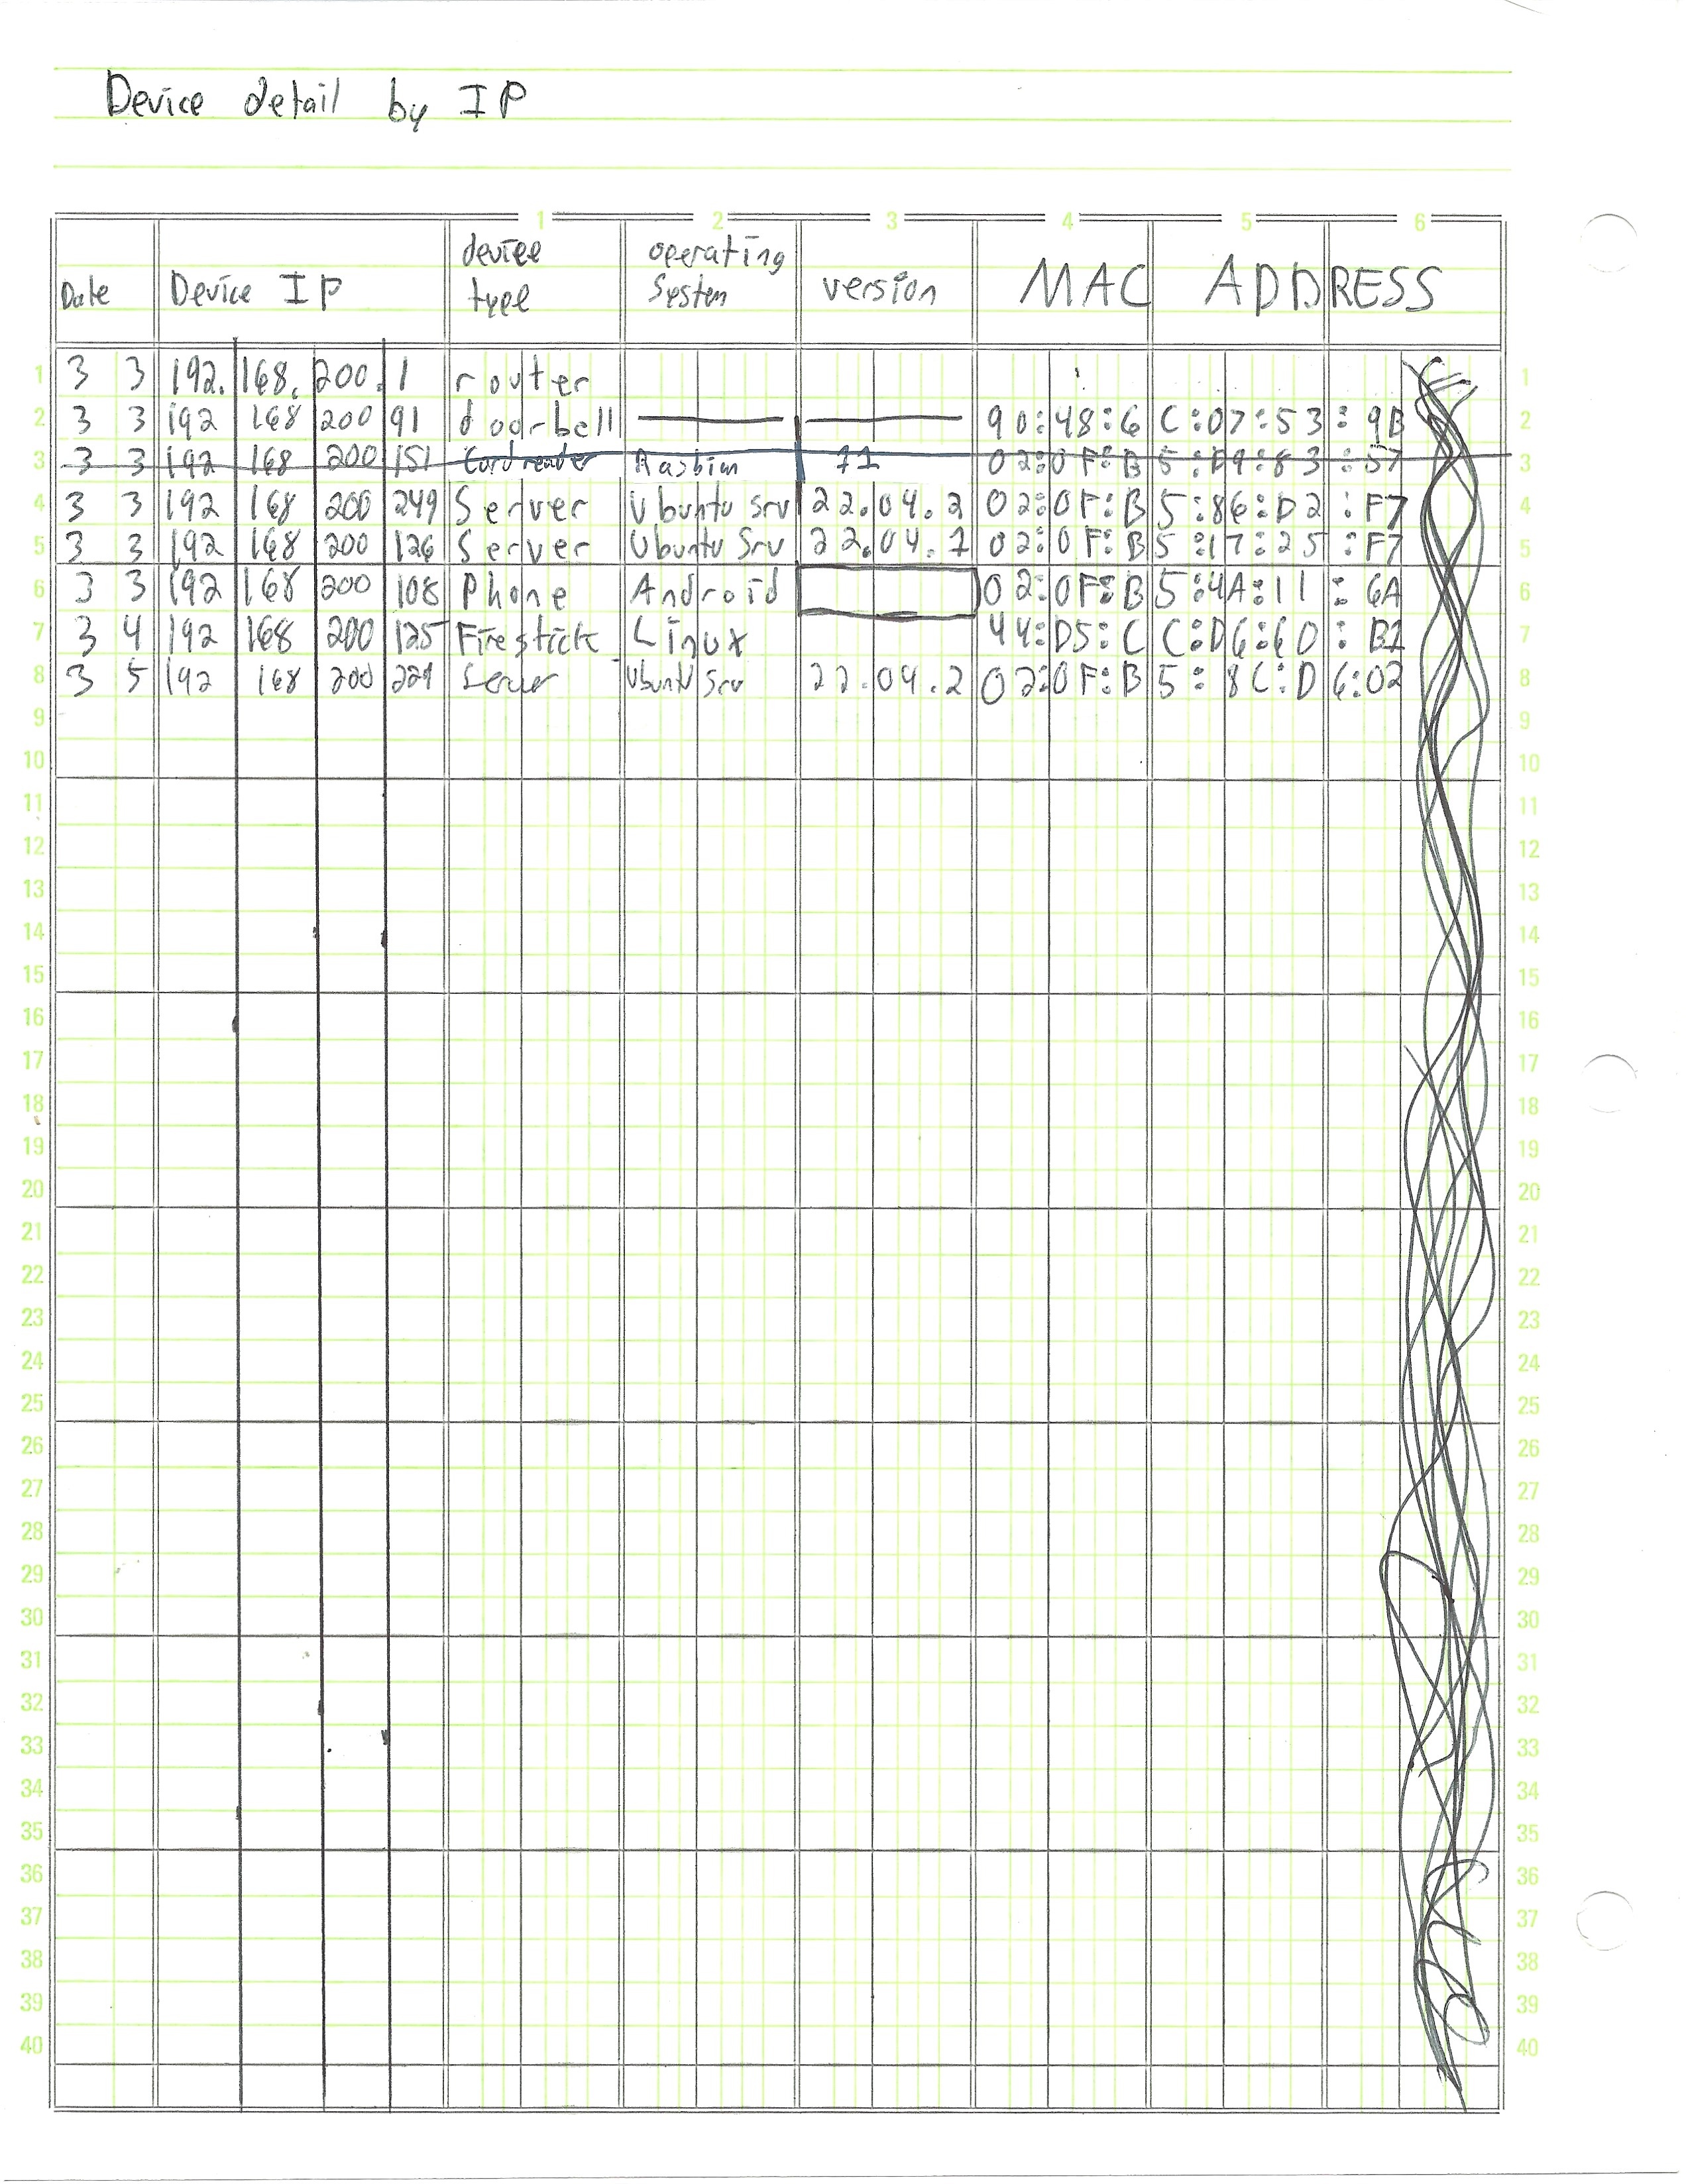 Device detail by IP
1 2 3 4 5 6
Date Device IP device type operating System version MAC ADDRESS
1 3 3 192. 168. 200. 1 router 1
2 3 3 192 168 200 91 doorbell 90:48:6C:07:53:9B 2
3 3 3 192 168 200 151 Card reader Rasbian 11 02:0F:B5:D9:83:57 3
4 3 3 192 168 200 249 Server Ubuntu Srv 22.04.2 02:0F:B5:86:D2:F7 4
5 3 3 192 168 200 126 Server Ubuntu Srv 22.04.1 02:0F:B5:17:25:F7 5
6 3 3 192 168 200 108 Phone Android 02:0F:B5:4A:11:6A 6
7 3 4 192 168 200 125 Firestick Linux 44:D5:CC:D6:60:B1 7
8 3 5 192 168 200 221 Server Ubuntu Srv 22.04.2 02:0F:B5:8C:D6:02 8
9 9
10 10
11 11
12 12
13 13
14 14
15 15
16 16
17 17
18 18
19 19
20 20
21 21
22 22
23 23
24 24
25 25
26 26
27 27
28 28
29 29
30 30
31 31
32 32
33 33
34 34
35 35
36 36
37 37
38 38
39 39
40 40